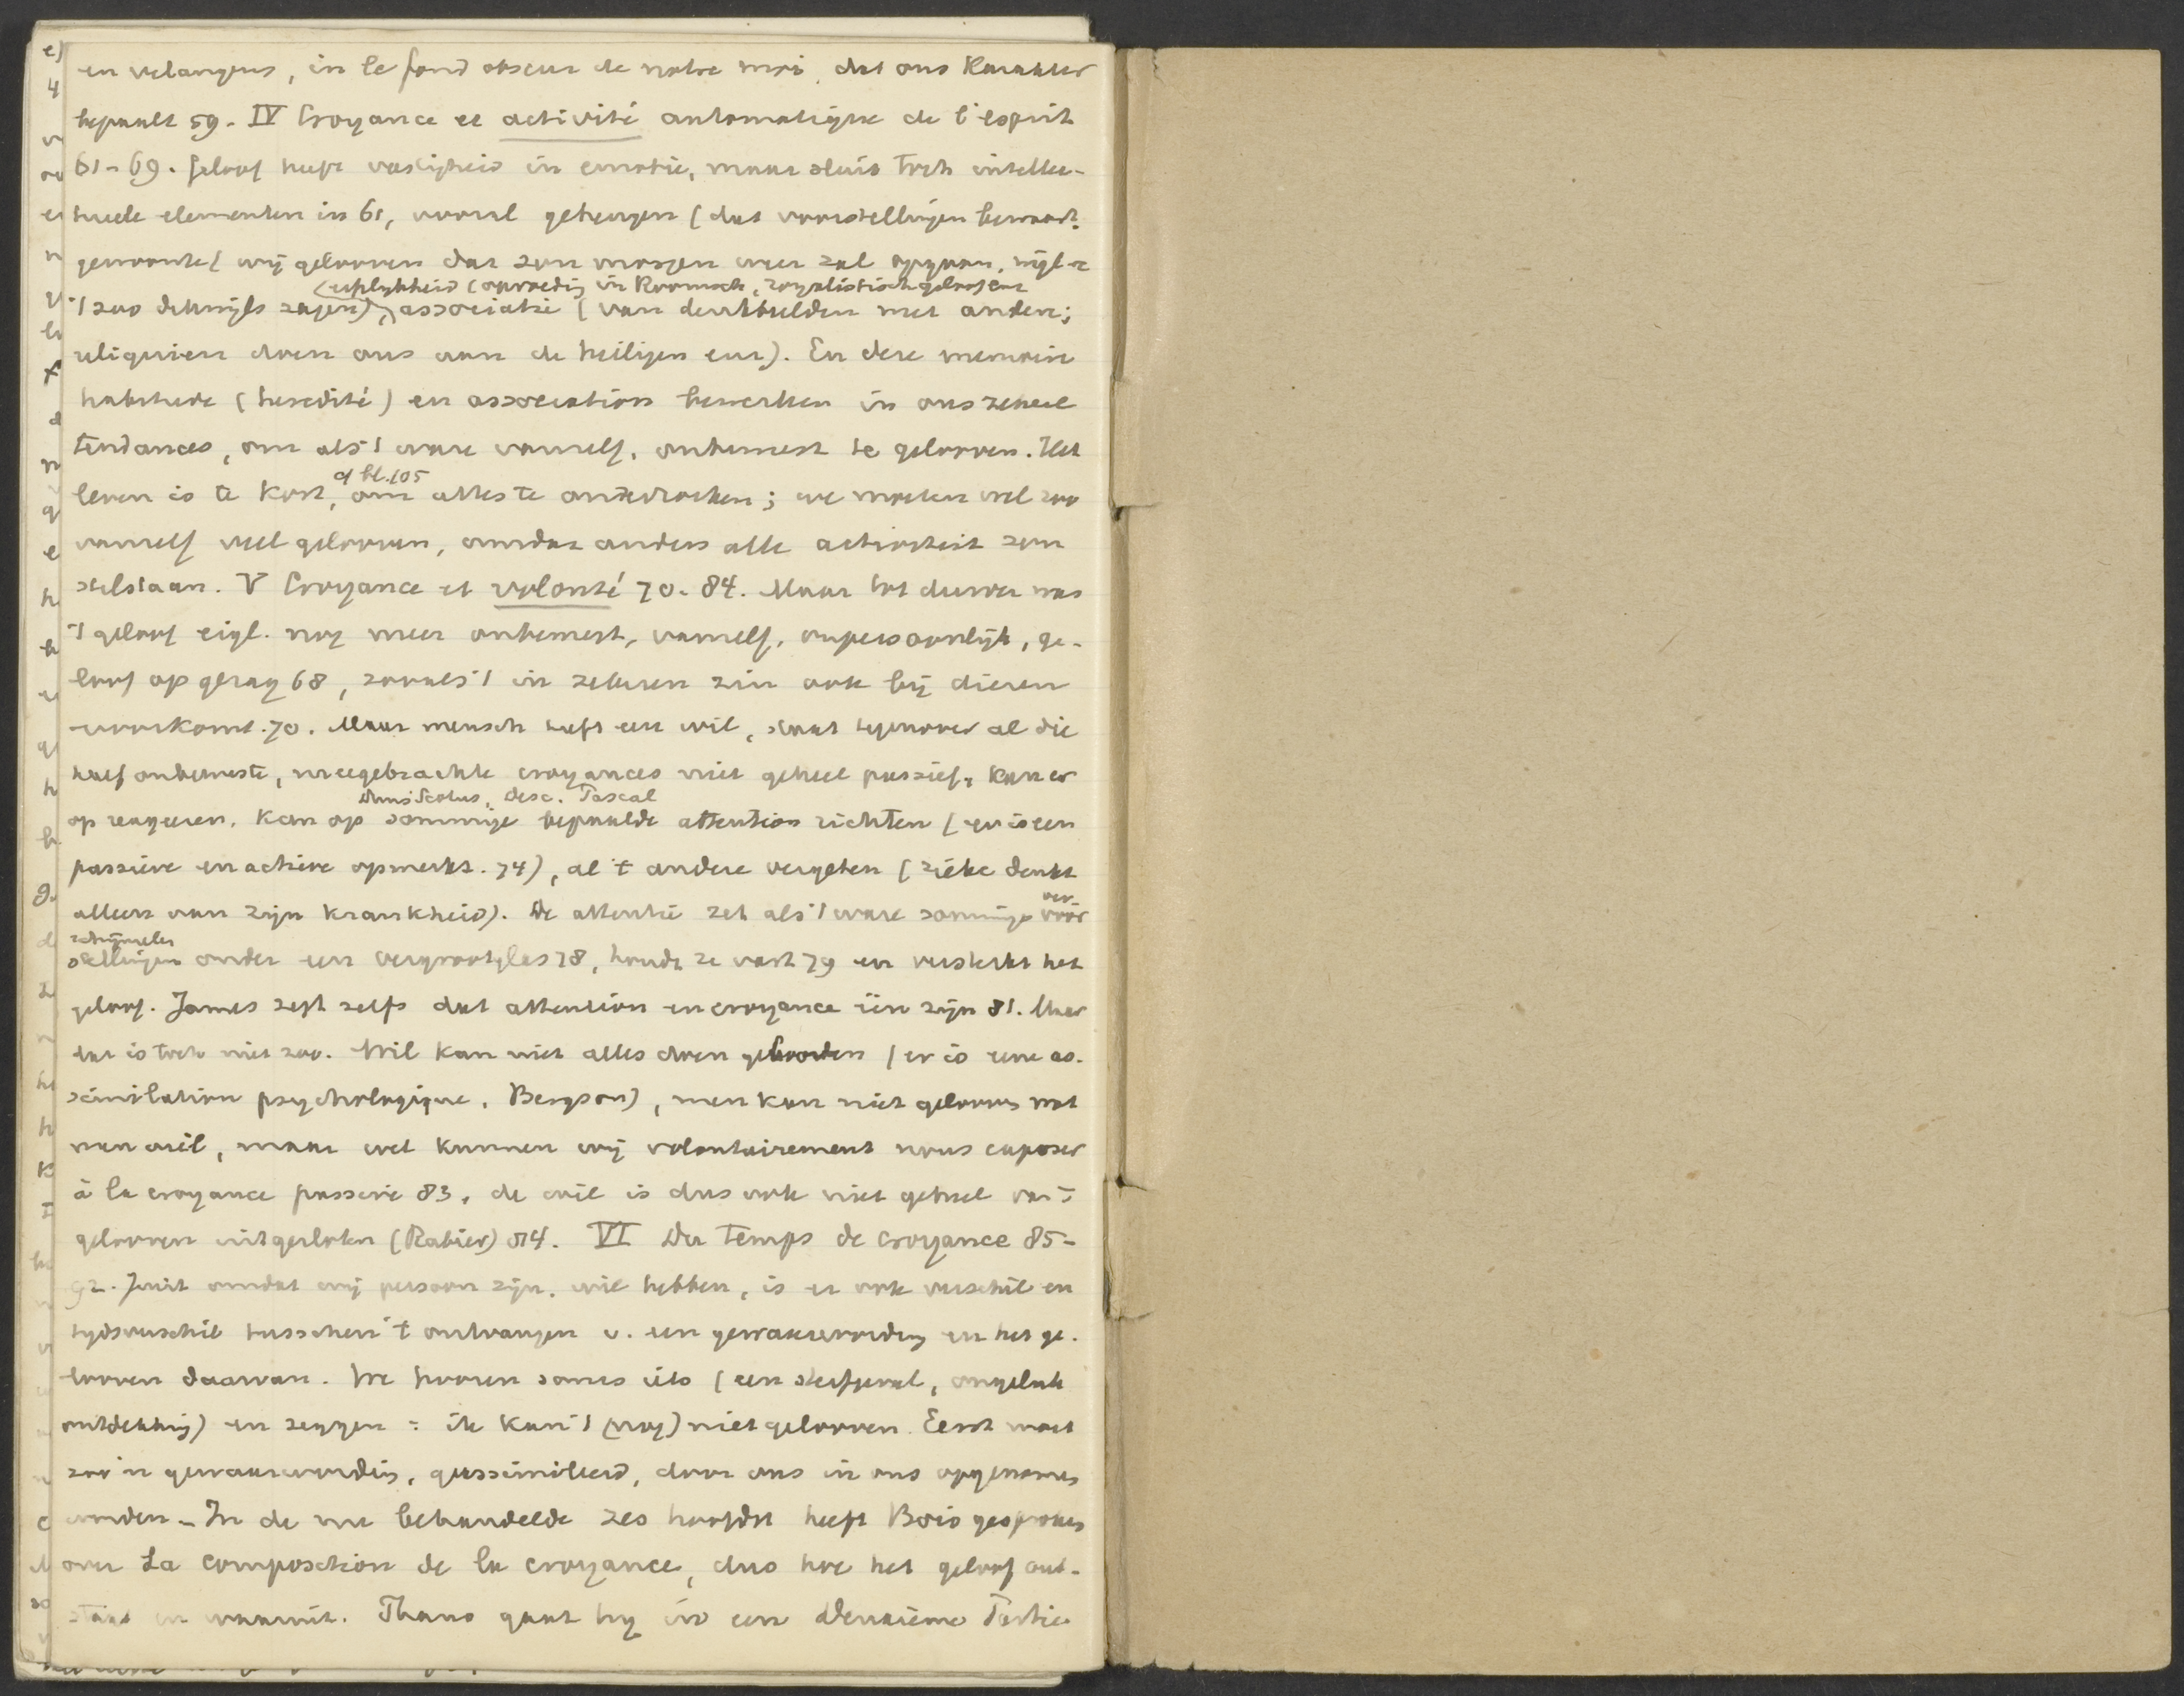 en verlangens, in le fond obscur de notre moi, dat ons karakter
bepaalt 59. IV Croyance et activité automatique de l'esprit
61-69. Geloof heeft vastigheid in emotie, maar sluit toch intellec-
tueele elementen in 61, vooral geheugen (dat voorstellingen bewaart,
gewoonte (wij gelooven dat zon morgen weer zal opgaan, wijl we
(erflijkheid (opvoeding in Roomsch, royalistisch geloof enz
't zoo dikwijls zagen), associatie (van denkbeelden met andere;
reliquien doen ons aan de heiligen enz). En deze memoire
habitude (heredité) en association bewerken in ons zekere
tendances, om als 't ware vanzelf, onbewust te gelooven. Het
cf bl. 105
leven is te kort, om alles te onderzoeken; we moeten wel zoo
vanzelf veel gelooven, omdat anders alle activiteit zou
stilstaan. V Croyance et volonté 70-84. Maar tot dusver was
't geloof eigl. nog meer onbewust, vanzelf, onpersoonlijk, ge-
loof op gezag 68, zooals 't in zekeren zin ook bij dieren
voorkomt. 70. Maar mensch heeft een wil, staat tegenover al die
half onbewuste, meegebrachte croyances niet geheel passief, kan er
Duns Scotus, Desc. Pascal
op reageeren, kan op sommige bepaalde attention richten (er is een
passieve en actieve opmerkz. 74), al 't andere vergeten (zieke denkt
alleen aan zijn krankheid). De attentie zet als 't ware sommige voor
ver
schijnselen
stellingen onder een vergrootglas 78, houdt ze vast 79 en versterkt het
geloof. James zegt zelfs dat attention en croyance één zijn 81. Maar
dat is toch niet zoo. Wil kan niet alles doen gelooven (er is eene as-
similation psychologique, Bergson), men kan niet gelooven wat
men wil, maar wel kunnen wij volontairement nous exposer
à la croyance passive 83, de wil is dus ook niet geheel van 't
gelooven uitgesloten (Rabier) 84. VI Du temps de croyance 85-
92. Juist omdat wij persoon zijn, wil hebben, is er ook verschil en
tijdsverschil tusschen 't ontvangen v. een gewaarwording en het ge-
looven daarvan. We hooren soms iets (een sterfgeval, ongeluk
ontdekking) en zeggen: ik kan 't (nog) niet gelooven. Eerst moet
zoo'n gewaarwording, geassimileerd, door ons in ons opgenomen
worden. - In de nu behandelde zes hoofdst heeft Bois gesproken
over La composition de la croyance, dus hoe het geloof ont-
staat en waaruit. Thans gaat hij in een deuxième Partie